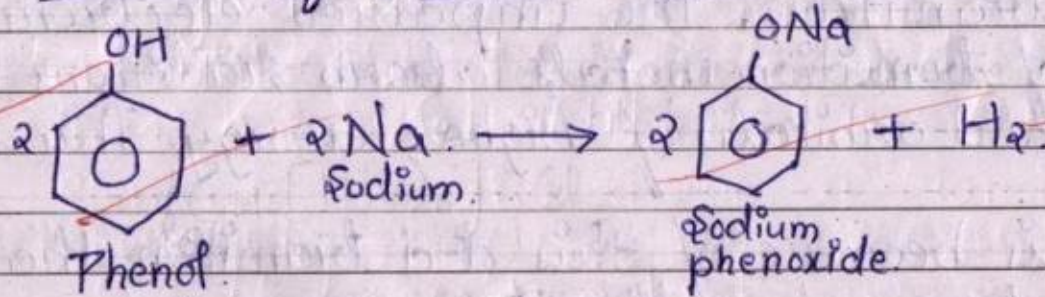 OH ONa
2 + 2Na. → 2 + H2.
Sodium.
Phenol.
Sodium
phenoxide.